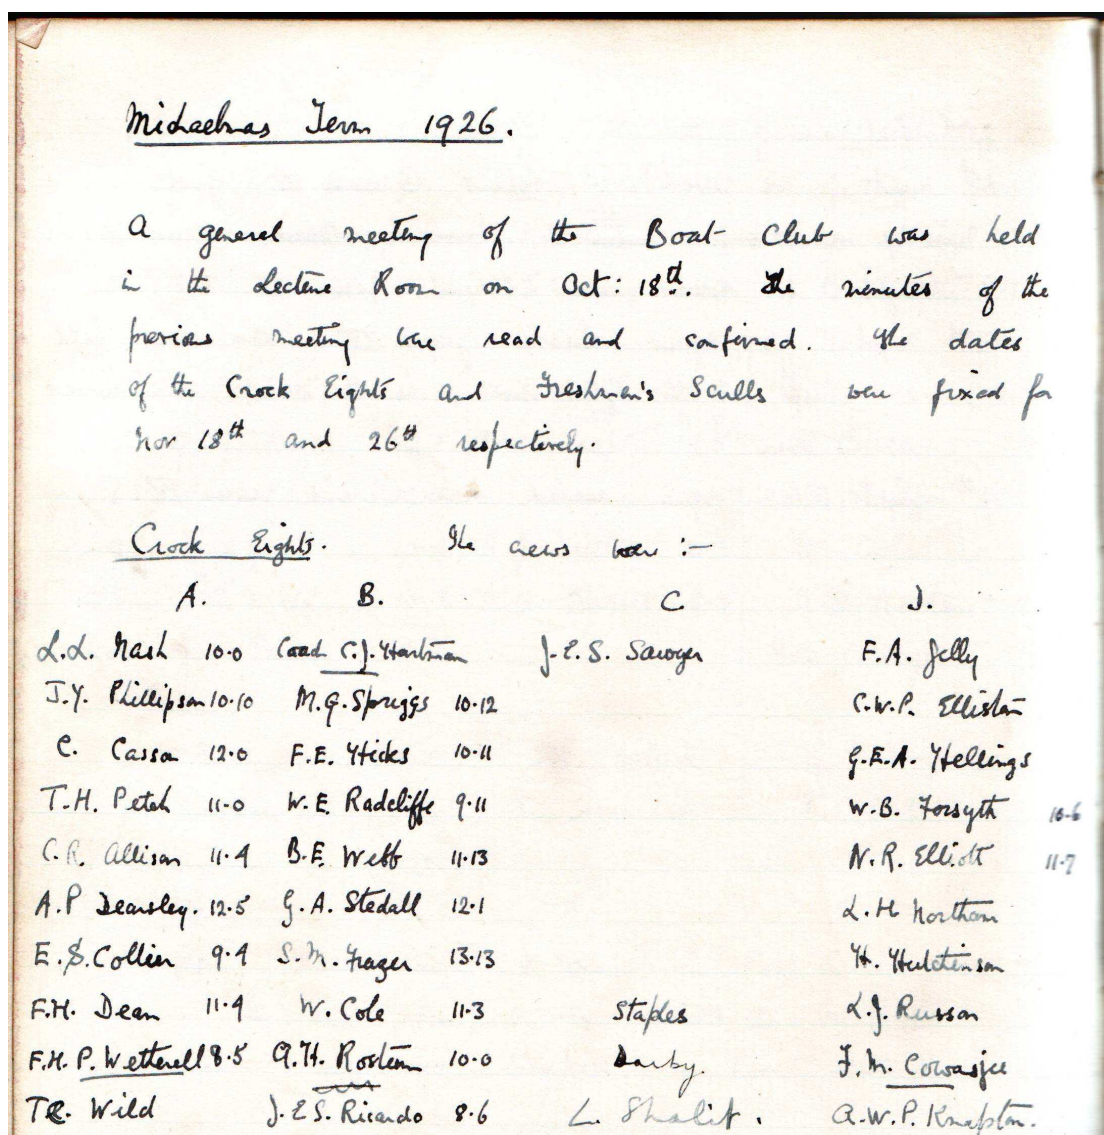 Michaelmas Term 1926.
A general meeting of the Boat Club was held
in the Lecture Room on Oct: 18th. The minutes of the
previous meeting were read and confirmed. The dates
of the Crock Eights and Freshmen's Sculls were fixed for
Nov 18th and 26th respectively.
Crock Eights. The crews were :-
A. B. C. D.
L.L. Nash 10.0 Coad C.J. Hartman J.E.S. Sawyer F.A. Jelly
J.Y. Phillipson 10.10 M.G. Spriggs 10.12 C.W.P. Elliston
C. Casson 12.0 F.E. Hicks 10.11 G.E.A. Hellings
T.H. Petch 11.0 W.E. Radcliffe 9.11 W.B. Forsyth 10.6
C.R. Allison 11.4 B.E. Webb 11.13 N.R. Elliott 11.7
A.P Dearsley. 12.5 G.A. Stedall 12.1 L.H Northam
E.S. Collier 9.4 S.M. Frazer 13.13 H. Hutchinson
F.H. Dean 11.4 W. Cole 11.3 Staples L.J. Russon
F.H.P. Wetherell 8.5 A.H. Rostern 10.0 Darby. F.M. Cowasjee
T.C. Wild J.E.S. Ricardo 8.6 L. Shalit. A.W.P. Knapton.